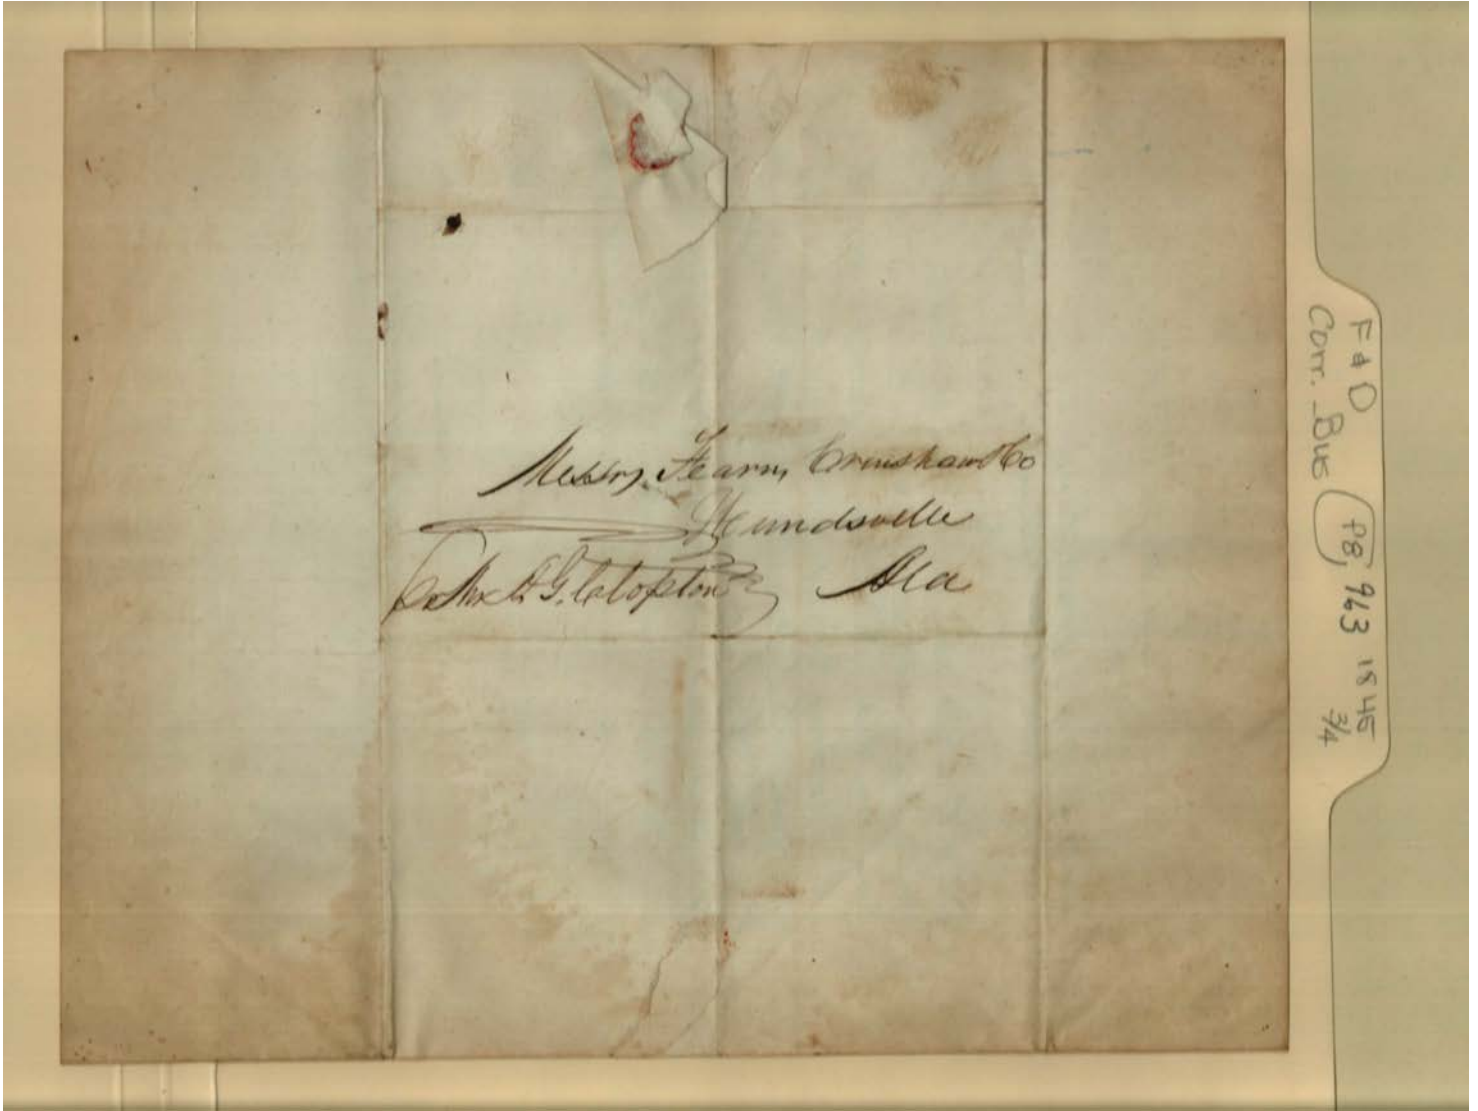 Messrs. Fearn, Crenshaw & Co
Hundsville
Mr. A. G. Clopton
Ala
F & D
Corr. Bus P8, 963 1845
3/4